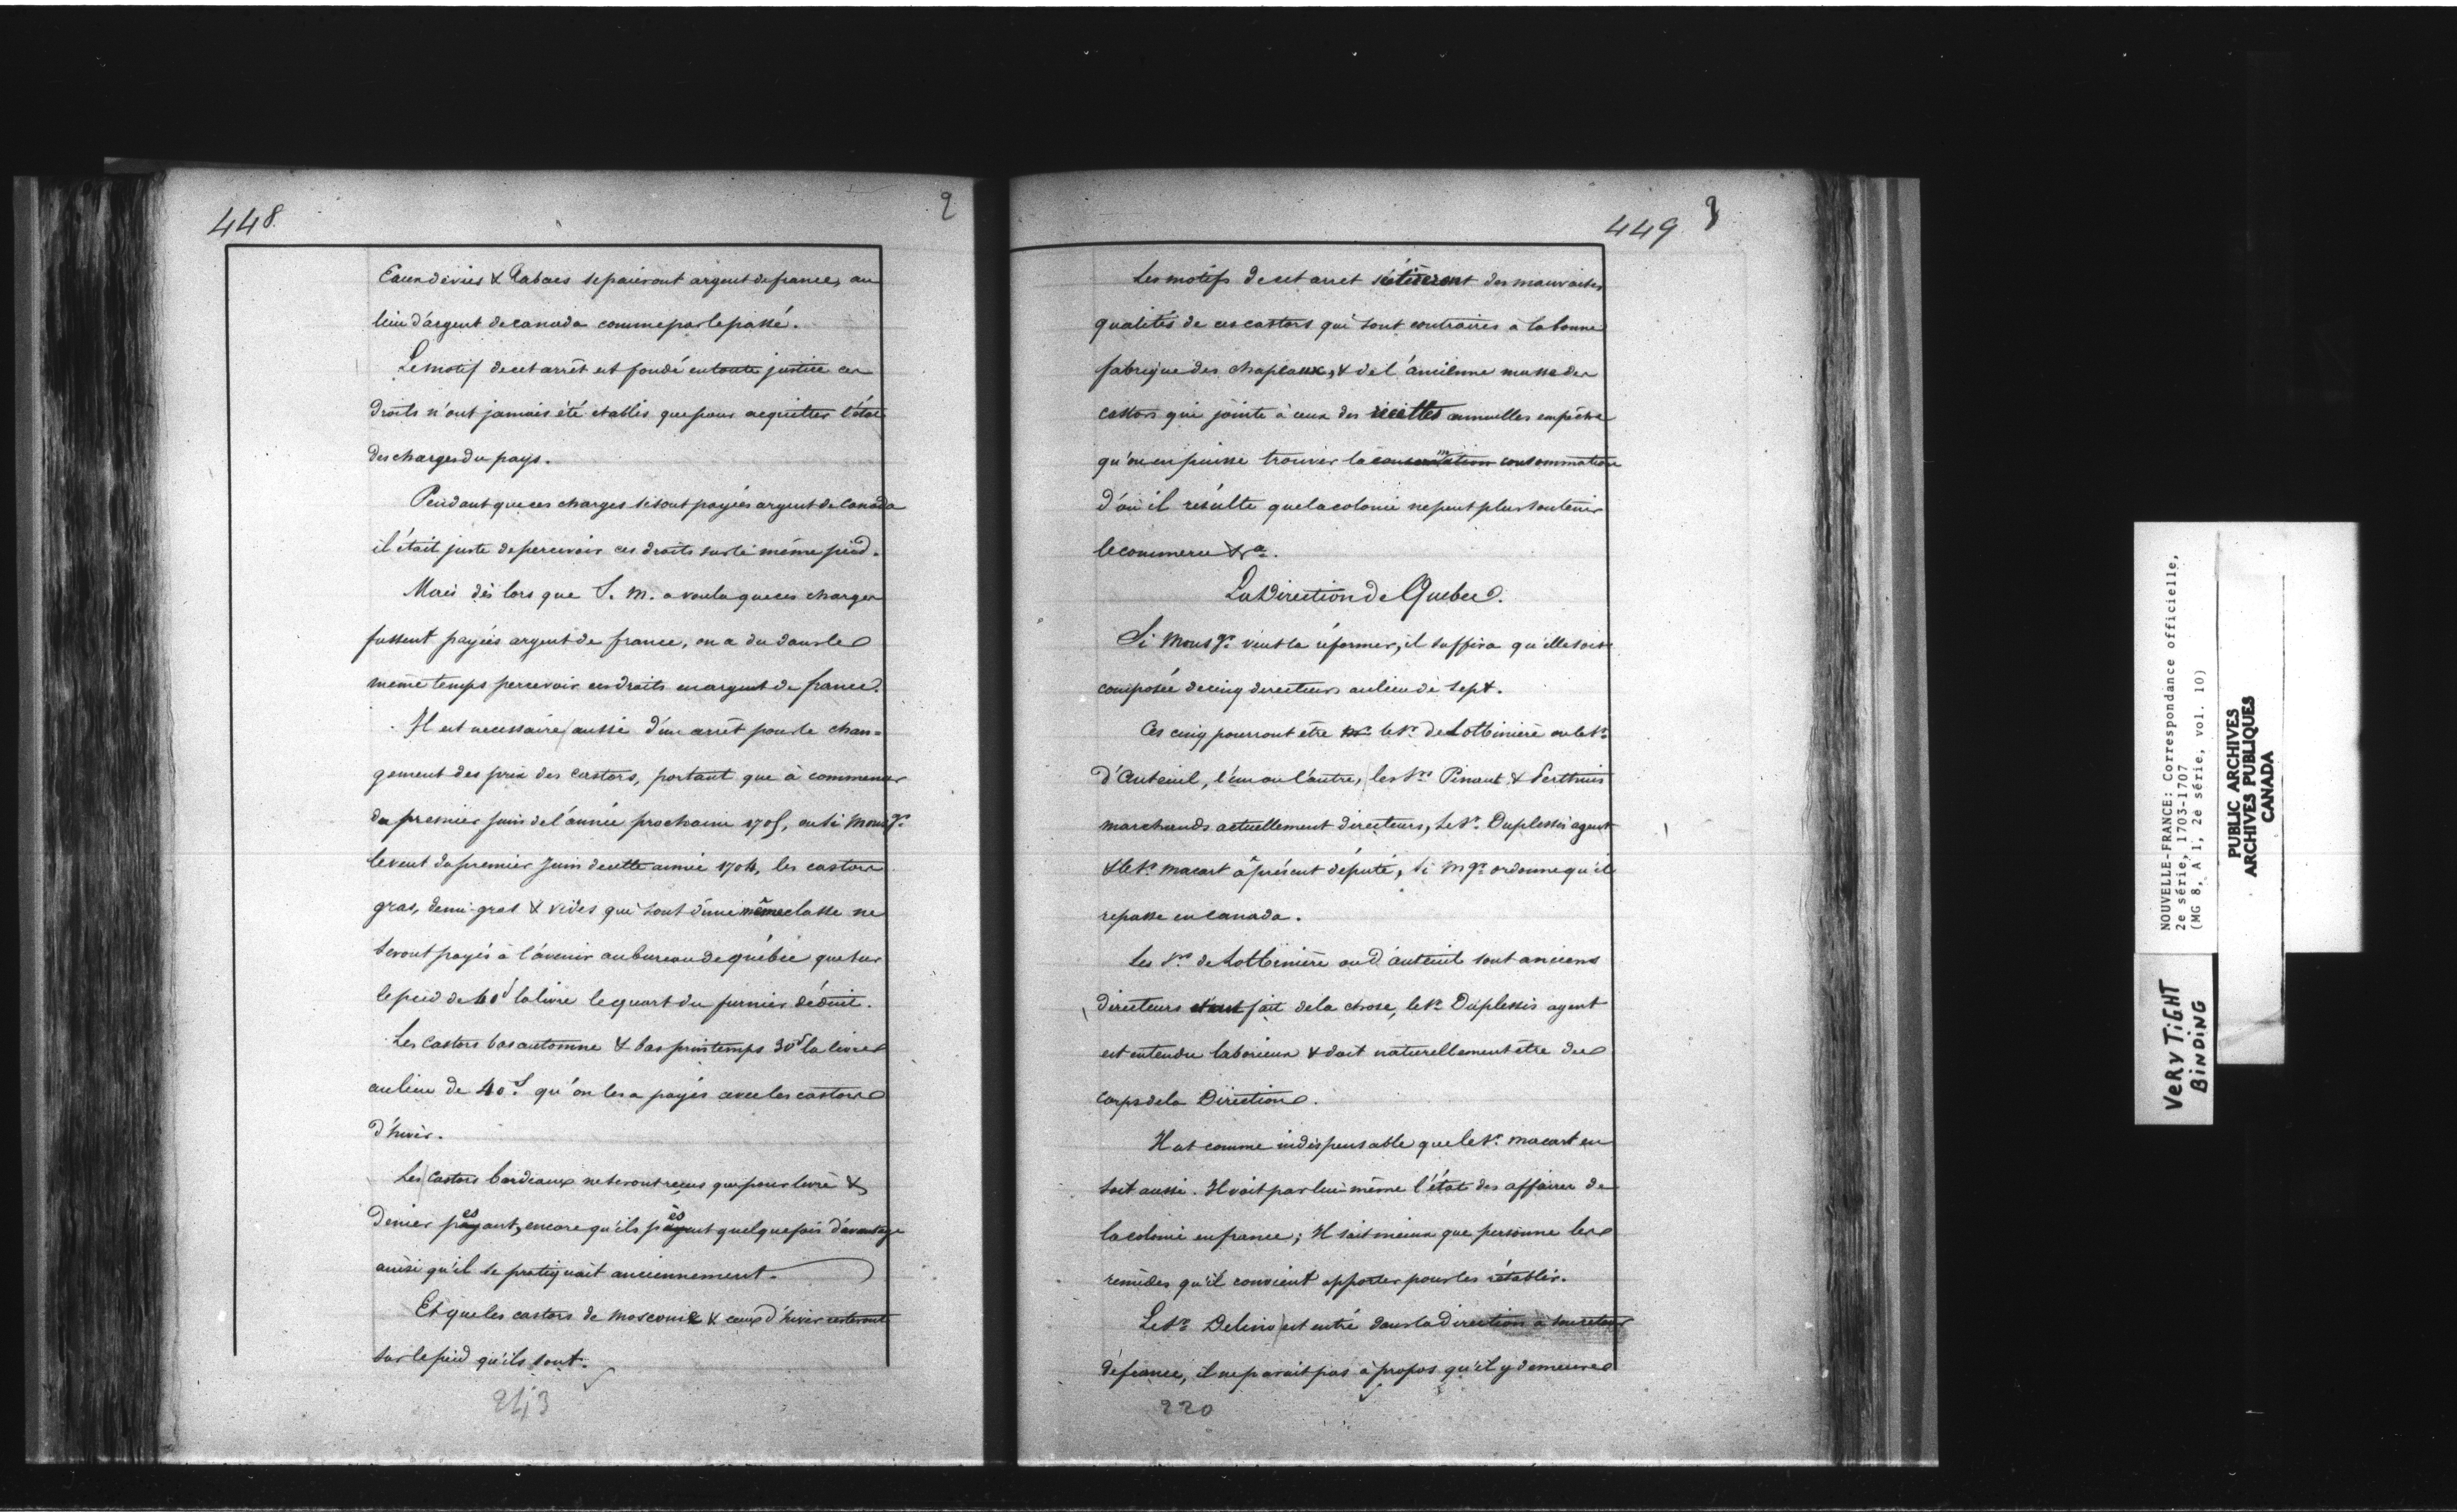 448
2
Eaux de vies & Tabacs se paieront argent de france, au
lieu d'argent de canada comme par le passé.
Le motif de cet arrêt est fondé en toute justice ces
droits n'ont jamais été etablis que pour acquitter l'état
des charges du pays.
Pendant que ces charges se sont payées argent de Canada
il était juste de percevoir ces droits sur le même pied.
Mais dès lors que S. M. a voulu que ces charges
fussent payées argent de france, on a du dans le
même temps percevoir ces droits en argent de france.
Il est necessaire aussi d'un arrêt pour le chan=
gement des prix des castors, portant que à commencer
du premier juin de l'année prochaine 1705, ou si Monsgr.
le veut du premier Juin de cette année 1704, les castors
gras, demi-gras & veules qui sont d'une même classe ne
seront payés à l'avenir au bureau de québec que sur
le pied de 60s la livre le quart du dernier déduit.
Les Castors bas automne & bas printemps 30s la livre
au lieu de 40s. qu'on les a payés avec les castors
d'hiver.
Les Castors bardeaux ne seront reçus que pour livre &
denier pesant, encore qu'ils pesent quelque fois d'avantage
ainsi qu'il se pratiquait anciennement.
Et que les castors de moscovie & ceux d'hiver resteront
sur le pied qu'ils sont.
243
449
3
Les motifs de cet arret se tireront des mauvaises
qualités de ces castors qui sont contraires à la bonne
fabrique des chapeaux, & de l'ancienne masse des
castors qui jointe à ceux des recettes annuelles empêche
qu'on en puisse trouver la consommation
d'où il résulte que la colonie ne peut plus soutenir
le commerce &ca.
La Direction de Quebec.
Si Monsgr. veut la réformer, il suffira qu'elle soit
composée de cinq directeurs au lieu de sept.
Ces cinq pourront etre le Sr. de Lotbinière ou le Sr.
d'Auteuil, l'un ou l'autre, les Srs Pinaut & Perthuis
marchands actuellement directeurs, le Sr. Duplessis agent
& le Sr. macart à présent député, si Mgr. ordonne qu'il
repasse en Canada.
Les Srs de Lotbinière ou d'auteuil sont anciens
directeurs et au fait de la chose, le Sr. Duplessis agent
est entendu laborieux & doit naturellement être du
corps de la Direction.
Il est comme indispensable que le Sr. macart en
soit aussi. Il voit par lui même l'état des affaires de
la colonie en france; Il sait mieux que personne les
remèdes qu'il convient apporter pour les rétablir.
Le Sr. Delino est entré dans la direction à son retour
de france, il ne parait pas à propos qu'il y demeure
220
NOUVELLE-FRANCE: Correspondance officielle,
2e série, 1703-1707
(MG 8, A 1, 2e série, vol. 10)
PUBLIC ARCHIVES
ARCHIVES PUBLIQUES
CANADA
VERY TIGHT
BINDING